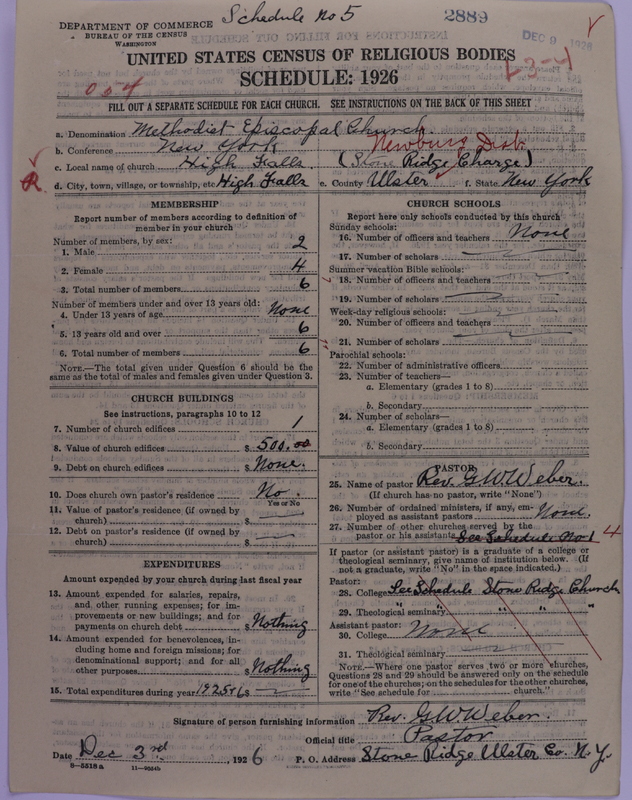 Schedule No 5
2889
DEPARTMENT OF COMMERCE
BUREAU OF THE CENSUS
WASHINGTON
DEC 9 1926
UNITED STATES CENSUS OF RELIGIOUS BODIES
SCHEDULE: 1926
L-3-4
004
FILL OUT A SEPARATE SCHEDULE FOR EACH CHURCH. SEE INSTRUCTIONS ON THE BACK OF THIS SHEET
a. Denomination Methodist Episcopal Church
b. Conference New York Newburg Dist
c. Local name of church High Falls (Stone Ridge Charge)
R
d. City, town, village, or township, etc High Falls e. County Ulster f. State New York
MEMBERSHIP
Report number of members according to definition of
member in your church
Number of members, by sex:
1. Male 2
2. Female 4
3. Total number of members 6
Number of members under and over 13 years old:
4. Under 13 years of age None
5. 13 years old and over 6
6. Total number of members 6
NOTE.—The total given under Question 6 should be
same as the total of males and females given under Question 3.
CHURCH BUILDINGS
See instructions, paragraphs 10 to 12
7. Number of church edifices 1
8. Value of church edifices $ 500.00
9. Debt on church edifices $ None.
10. Does church own pastor's residence No.
Yes or No
11. Value of pastor's residence (if owned by
church) $
12. Debt on pastor's residence (if owned by
church) $
EXPENDITURES
Amount expended by your church during last fiscal year
13. Amount expended for salaries, repairs,
and other running expenses; for im-
provements or new buildings; and for
payments on church debt $ Nothing
14. Amount expended for benevolences, in-
cluding home and foreign missions; for
denominational support; and for all
other purposes $ Nothing
15. Total expenditures during year 1925+6 $
CHURCH SCHOOLS
Report here only schools conducted by this church
Sunday schools:
16. Number of officers and teachers None
17. Number of scholars
Summer vacation Bible schools:
18. Number of officers and teachers
19. Number of scholars
Week-day religious schools:
20. Number of officers and teachers
21. Number of scholars
Parochial schools:
22. Number of administrative officers
23. Number of teachers—
a. Elementary (grades 1 to 8)
b. Secondary
24. Number of scholars—
a. Elementary (grades 1 to 8)
b. Secondary
PASTOR
25. Name of pastor Rev. G W Weber.
(If church has no pastor, write "None")
26. Number of ordained ministers, if any, em-
ployed as assistant pastors None.
27. Number of other churches served by the
pastor or his assistants See Schedule No 1 4
If pastor (or assistant pastor) is a graduate of a college or
theological seminary, give name of institution below. (If
not a graduate, write "No" in the space indicated.)
Pastor:
28. College See Schedule Stone Ridge Church
29. Theological seminary " " " " "
Assistant pastor:
30. College None
31. Theological seminary
NOTE.—Where one pastor serves two or more churches,
Questions 28 and 29 should be answered only on the schedule
for one of the churches; on the schedules for the other churches,
write "See schedule for church."
Signature of person furnishing information Rev. G W Weber.
Official title Pastor
Date Dec 3rd, 1926 P. O. Address Stone Ridge Ulster Co. N.Y.
8—5518a 11—9054b